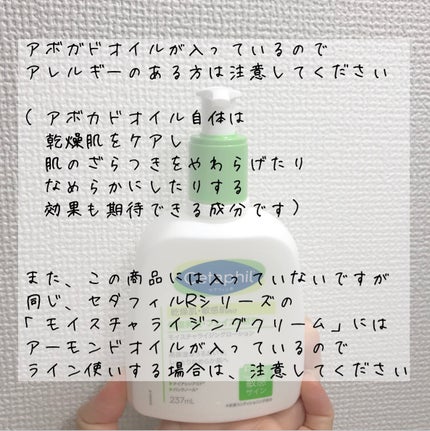 アボガドオイルが入っているので
アレルギーのある方は注意してください
(アボカドオイル自体は
乾燥肌をケアし
肌のざらつきをやわらげたり
なめらかにしたりする
効果も期待できる成分です)
Cetaphil
また、この商品には入っていないですが
同じ、セダフィルRシリーズの
「モイスチャライジングクリーム」には
アーモンドオイルが入っているので
ライン使いする場合は、注意してください
237mL